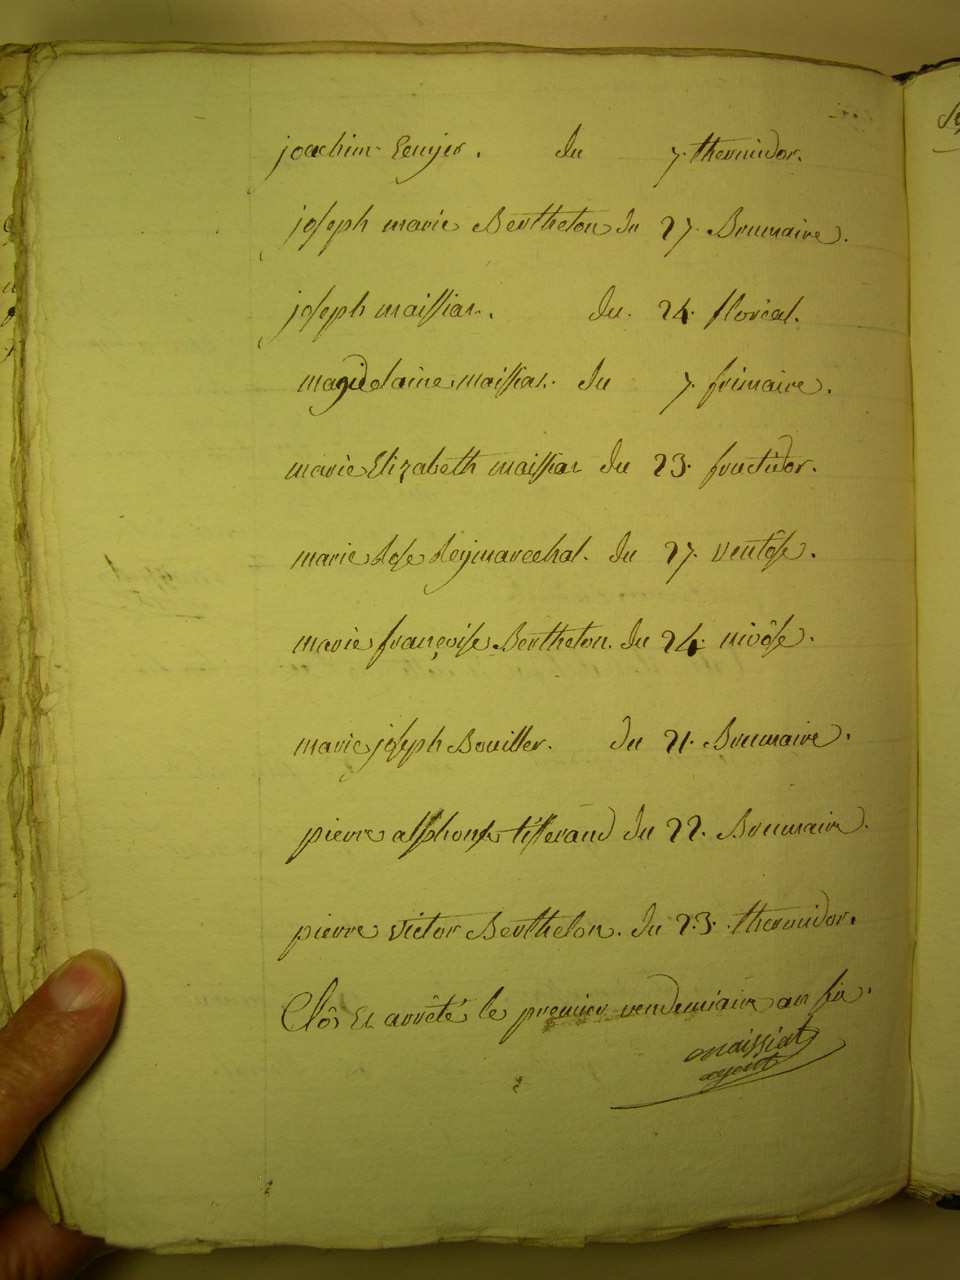 joachim du 7. thermidor.
joseph marie Bertheton du 27. Brumaire.
joseph maissiat. du. 24. floréal.
magdelaine maissiat. du 7. frimaire.
marie Elizabeth maissiat du 23. fructidor.
marie du 27. ventôse.
marie françoise Bertheton. du 24. nivôse.
marie joseph Bouiller. du 21. Brumaire.
pierre alphonse tisserand du 22. Brumaire.
pierre victor Berthelon. du 23. thermidor.
Clôs Et arrêté le premier vendemiaire an six.
maissiat
agent